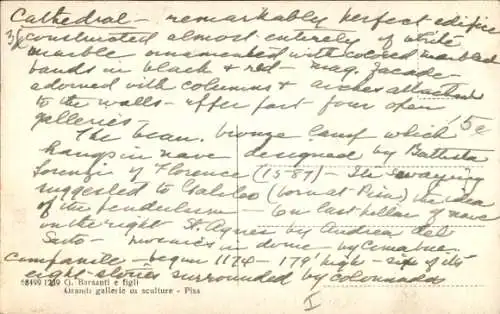 Cathedral - remarkably perfect edifice
constructed almost entirely of white
marble ornamented with colored marble
bands in black & red - mag. facade
adorned with columns & arches attached
to the walls - upper part four open
galleries -
15c
The beau. bronze lamp which
hangs in nave designed by Battista
Lorenzi of Florence (1587) - The swaying
suggested to Galileo (born at Pisa) the idea
of the pendulum - On last pillar of nave
on the right St. Agnes by Andrea del
Sarto - mosaics in dome by Cimabue.
Campanile - begun 1174 - 179' high - six of its
eight stories surrounded by colonnades
I
58499 1269 G. Barsanti e figli
Grandi gallerie di sculture - Pisa